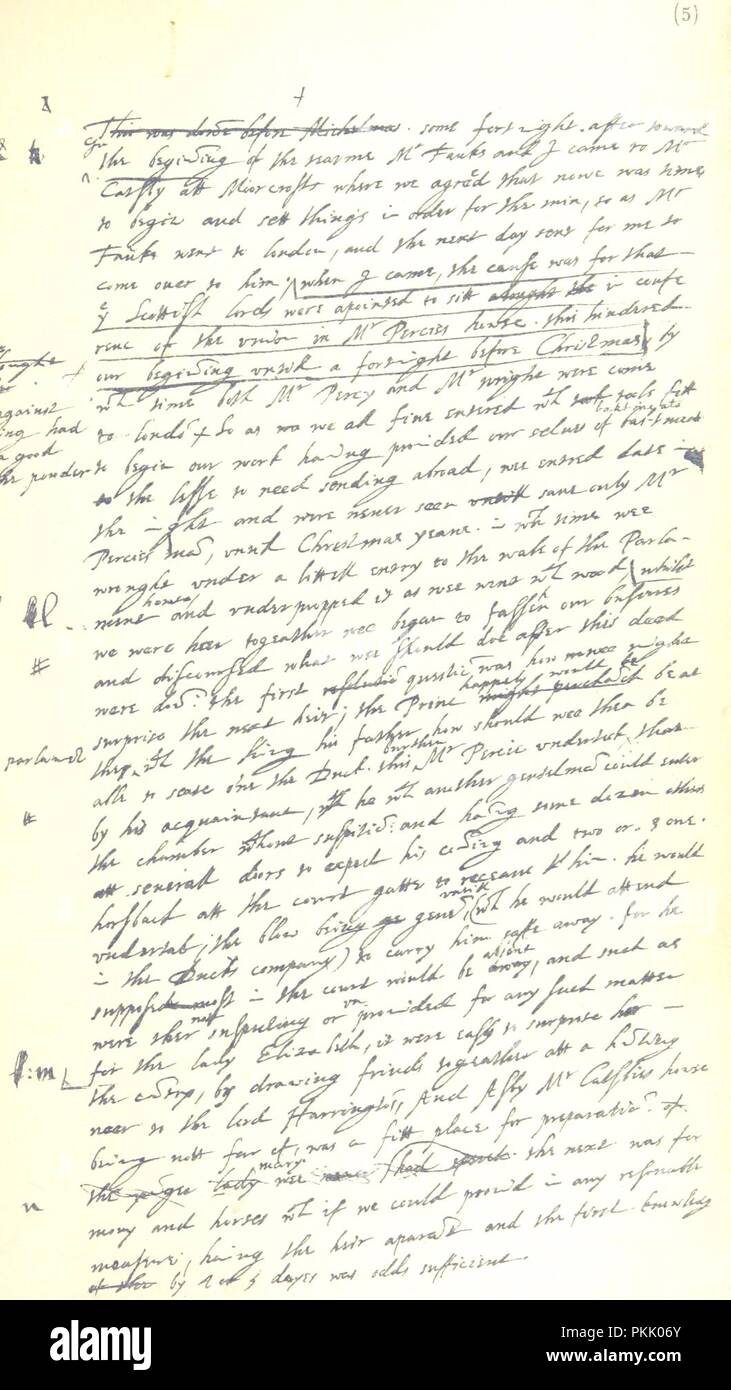 (5)
This was done before Michelmas. some fortnight after toward
the beginning of the tearme Mr Fauks and I came to Mr
Catsby att Moorcrofts where we agreed that nowe was time
to begin and sett things in order for the mine, so as Mr
Fauks went to london, and the next day sent for me to
come over to him. when I came, the cause was for that
ye Scottish lords were apointed to sitt in confe
rence of the union in Mr Percies house. this hindered
our beginning untill a fortnight before Christmas by
wch time both Mr Percy and Mr wright were come
to londo
to begin our work having provided our selves of baktmeats
to the lesse to need sending abroad, wee entred late in
the night and were never seen untill save only Mr
Percies man, untill Christmas yeave. in wch time wee
wrought under a littell entry to the wale of the Parla-
ment house and underpropped it as wee went wth wood, whilst
we were heer togeather wee began to fassen our busines
and discoursed what wee should doe after this deed
were done. the first question was how might
surprise the next heir; the Prince happely would be at
the wth the king his father, how should wee then be
able to sease one the Duck. this burthen Mr Percie undertook, that
by his acquaintance, he wth another gentelman could enter
the chamber without suspition and having some dozen others
att severall doors to expect his coming and two or 3 one
horsback att the court gatte to receave him. he would
undertak; the blow being geven, untill wch he would attend
in the Ducks company) to carry him saffe away. for he
supposed most in the court would be absent, and such as
were ther not suspecting or unprovided for any such matter
for the lady Elizabeth, it were easy to surprise her
the cuntry, by drawing friends togeather att a hunting
neer to the lord Harringtons, And Asby Mr Catsbies house
being nott far of, was a fitt place for preparation.
the lady mary the next was for
mony and horses wch if we could provid in any resonable
measure, having the heir aparant and the first knowledg
by 4 or 5 dayes was odds sufficient.
Alamy Stock Photo
alamy
Image ID: PKK06Y
www.alamy.com